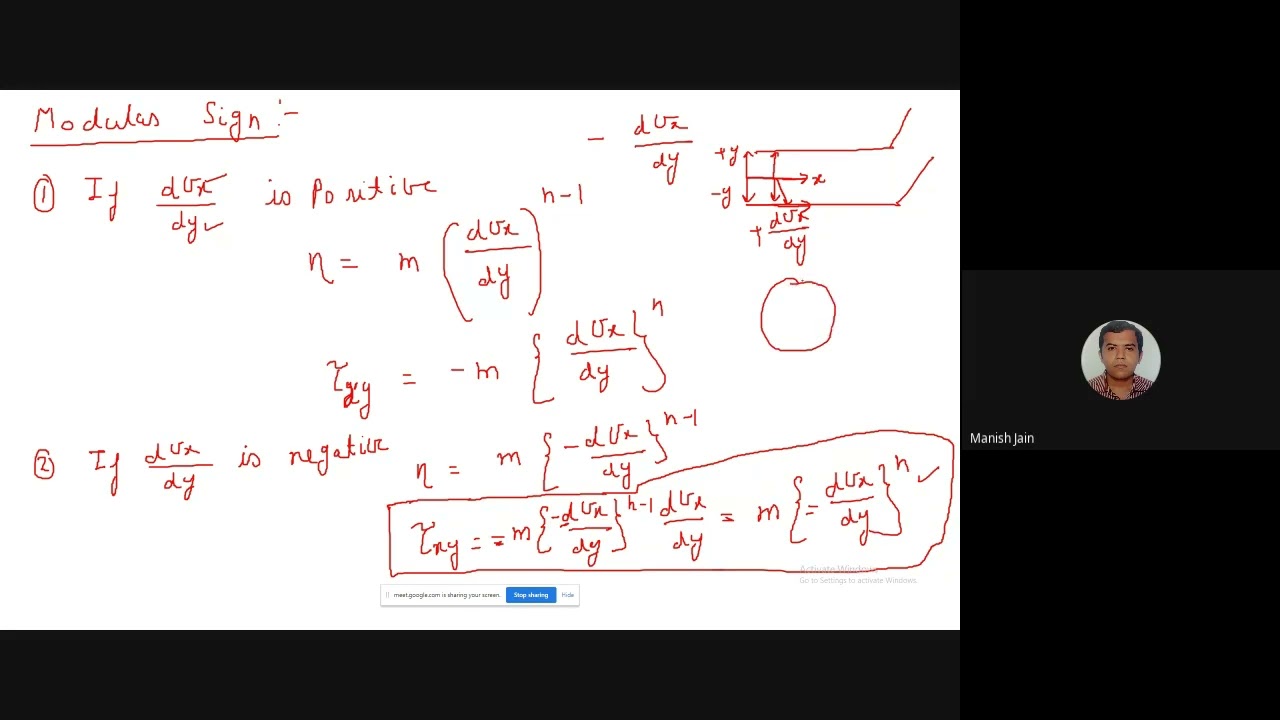 Modulas Sign :-
① If dvx/dy is Positive
η = m (dvx/dy)^n-1
τxy = -m {dvx/dy}^n
② If dvx/dy is negative
η = m {-dvx/dy}^n-1
τxy = = -m {-dvx/dy}^n-1 dvx/dy = m {-dvx/dy}^n ✓
- dvx/dy
+y
x
-y
+ dvx/dy
Manish Jain
Activate Windows
Go to Settings to activate Windows.
meet.google.com is sharing your screen. Stop sharing Hide